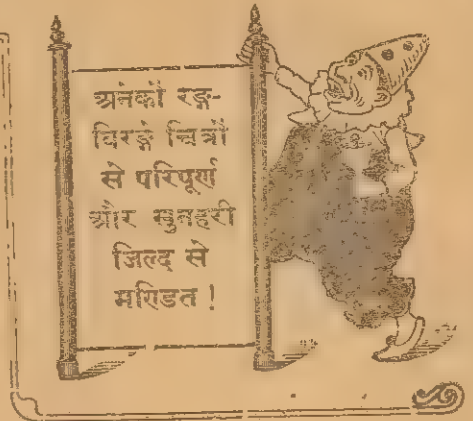 अनेकों रङ्ग-
विरङ्गे चित्रों
से परिपूर्ण
और सुनहरी
जिल्द से
मण्डित !